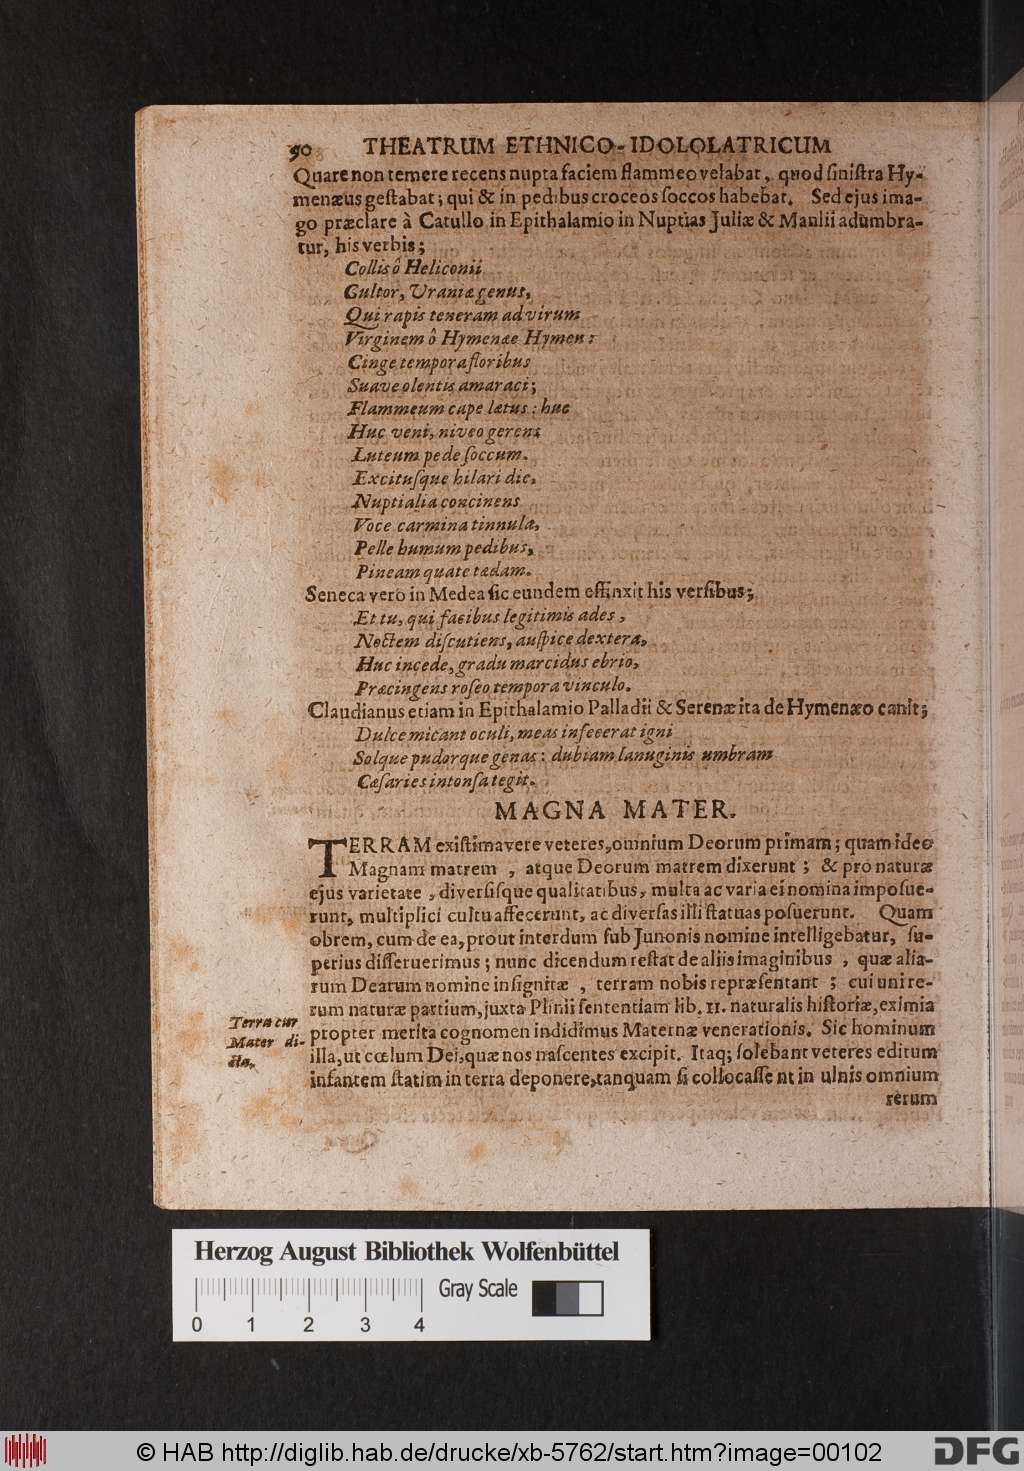 90 THEATRUM ETHNICO-IDOLOLATRICUM
Quare non temere recens nupta faciem flammeo velabat, quod ſiniſtra Hy-
menæus geſtabat; qui & in pedibus croceos ſoccos habebat. Sed ejus ima-
go præclare à Catullo in Epithalamio in Nuptias Juliæ & Manlii adumbra-
tur, his verbis;
Collis ô Heliconii
Cultor, Uraniæ genus,
Qui rapis teneram ad virum
Virginem ô Hymenæe Hymen:
Cinge tempora floribus
Suave olentis amaraci;
Flammeum cape lætus: huc
Huc veni, niveo gerens
Luteum pede ſoccum.
Excituſque hilari die,
Nuptialia concinens
Voce carmina tinnula,
Pelle humum pedibus,
Pineam quate tædam.
Seneca vero in Medea ſic eundem effinxit his verſibus;
Et tu, qui facibus legitimis ades,
Noctem diſcutiens, auſpice dextera,
Huc incede, gradu marcidus ebrio,
Præcingens roſeo tempora vinculo.
Claudianus etiam in Epithalamio Palladii & Serenæ ita de Hymenæo canit;
Dulce micant oculi, meas infecerat igni
Solque pudorque genas: dubiam lanuginis umbram
Cæſaries intonſa tegit.
MAGNA MATER.
TERRAM exiſtimavere veteres, omnium Deorum primam; quam ideo
Magnam matrem, atque Deorum matrem dixerunt; & pro naturæ
ejus varietate, diverſiſque qualitatibus, multa ac varia ei nomina impoſue-
runt, multiplici cultu affecerunt, ac diverſas illi ſtatuas poſuerunt. Quam
obrem, cum de ea, prout interdum ſub Junonis nomine intelligebatur, ſu-
perius differuerimus; nunc dicendum reſtat de aliis imaginibus, quæ alia-
rum Dearum nomine inſignitæ, terram nobis repræſentant; cui uni re-
rum naturæ partium, juxta Plinii ſententiam lib. 11. naturalis hiſtoriæ, eximia
propter merita cognomen indidimus Maternæ venerationis. Sic hominum
illa, ut cœlum Dei, quæ nos naſcentes excipit. Itaq; ſolebant veteres editum
infantem ſtatim in terra deponere, tanquam ſi collocaſſent in ulnis omnium
rerum
Terra cur
Mater di-
cta.
Herzog August Bibliothek Wolfenbüttel
Gray Scale
0 1 2 3 4
© HAB http://diglib.hab.de/drucke/xb-5762/start.htm?image=00102
DFG